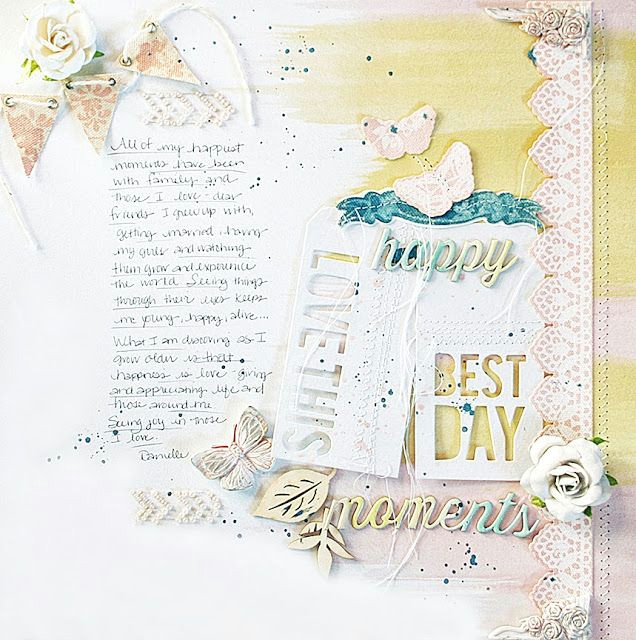 All of my happiest
moments have been
with family and
those I love - dear
friends I grew up with,
getting married, having
my girls and watching
them grow and experience
the world. Seeing things
through their eyes keeps
me young, happy, alive...
What I am discovering as I
grow older is that
happiness is love giving
and appreciating life and
those around me
Seeing joy in those
I love.
Danielle
happy
LOVE THIS
BEST
DAY
moments